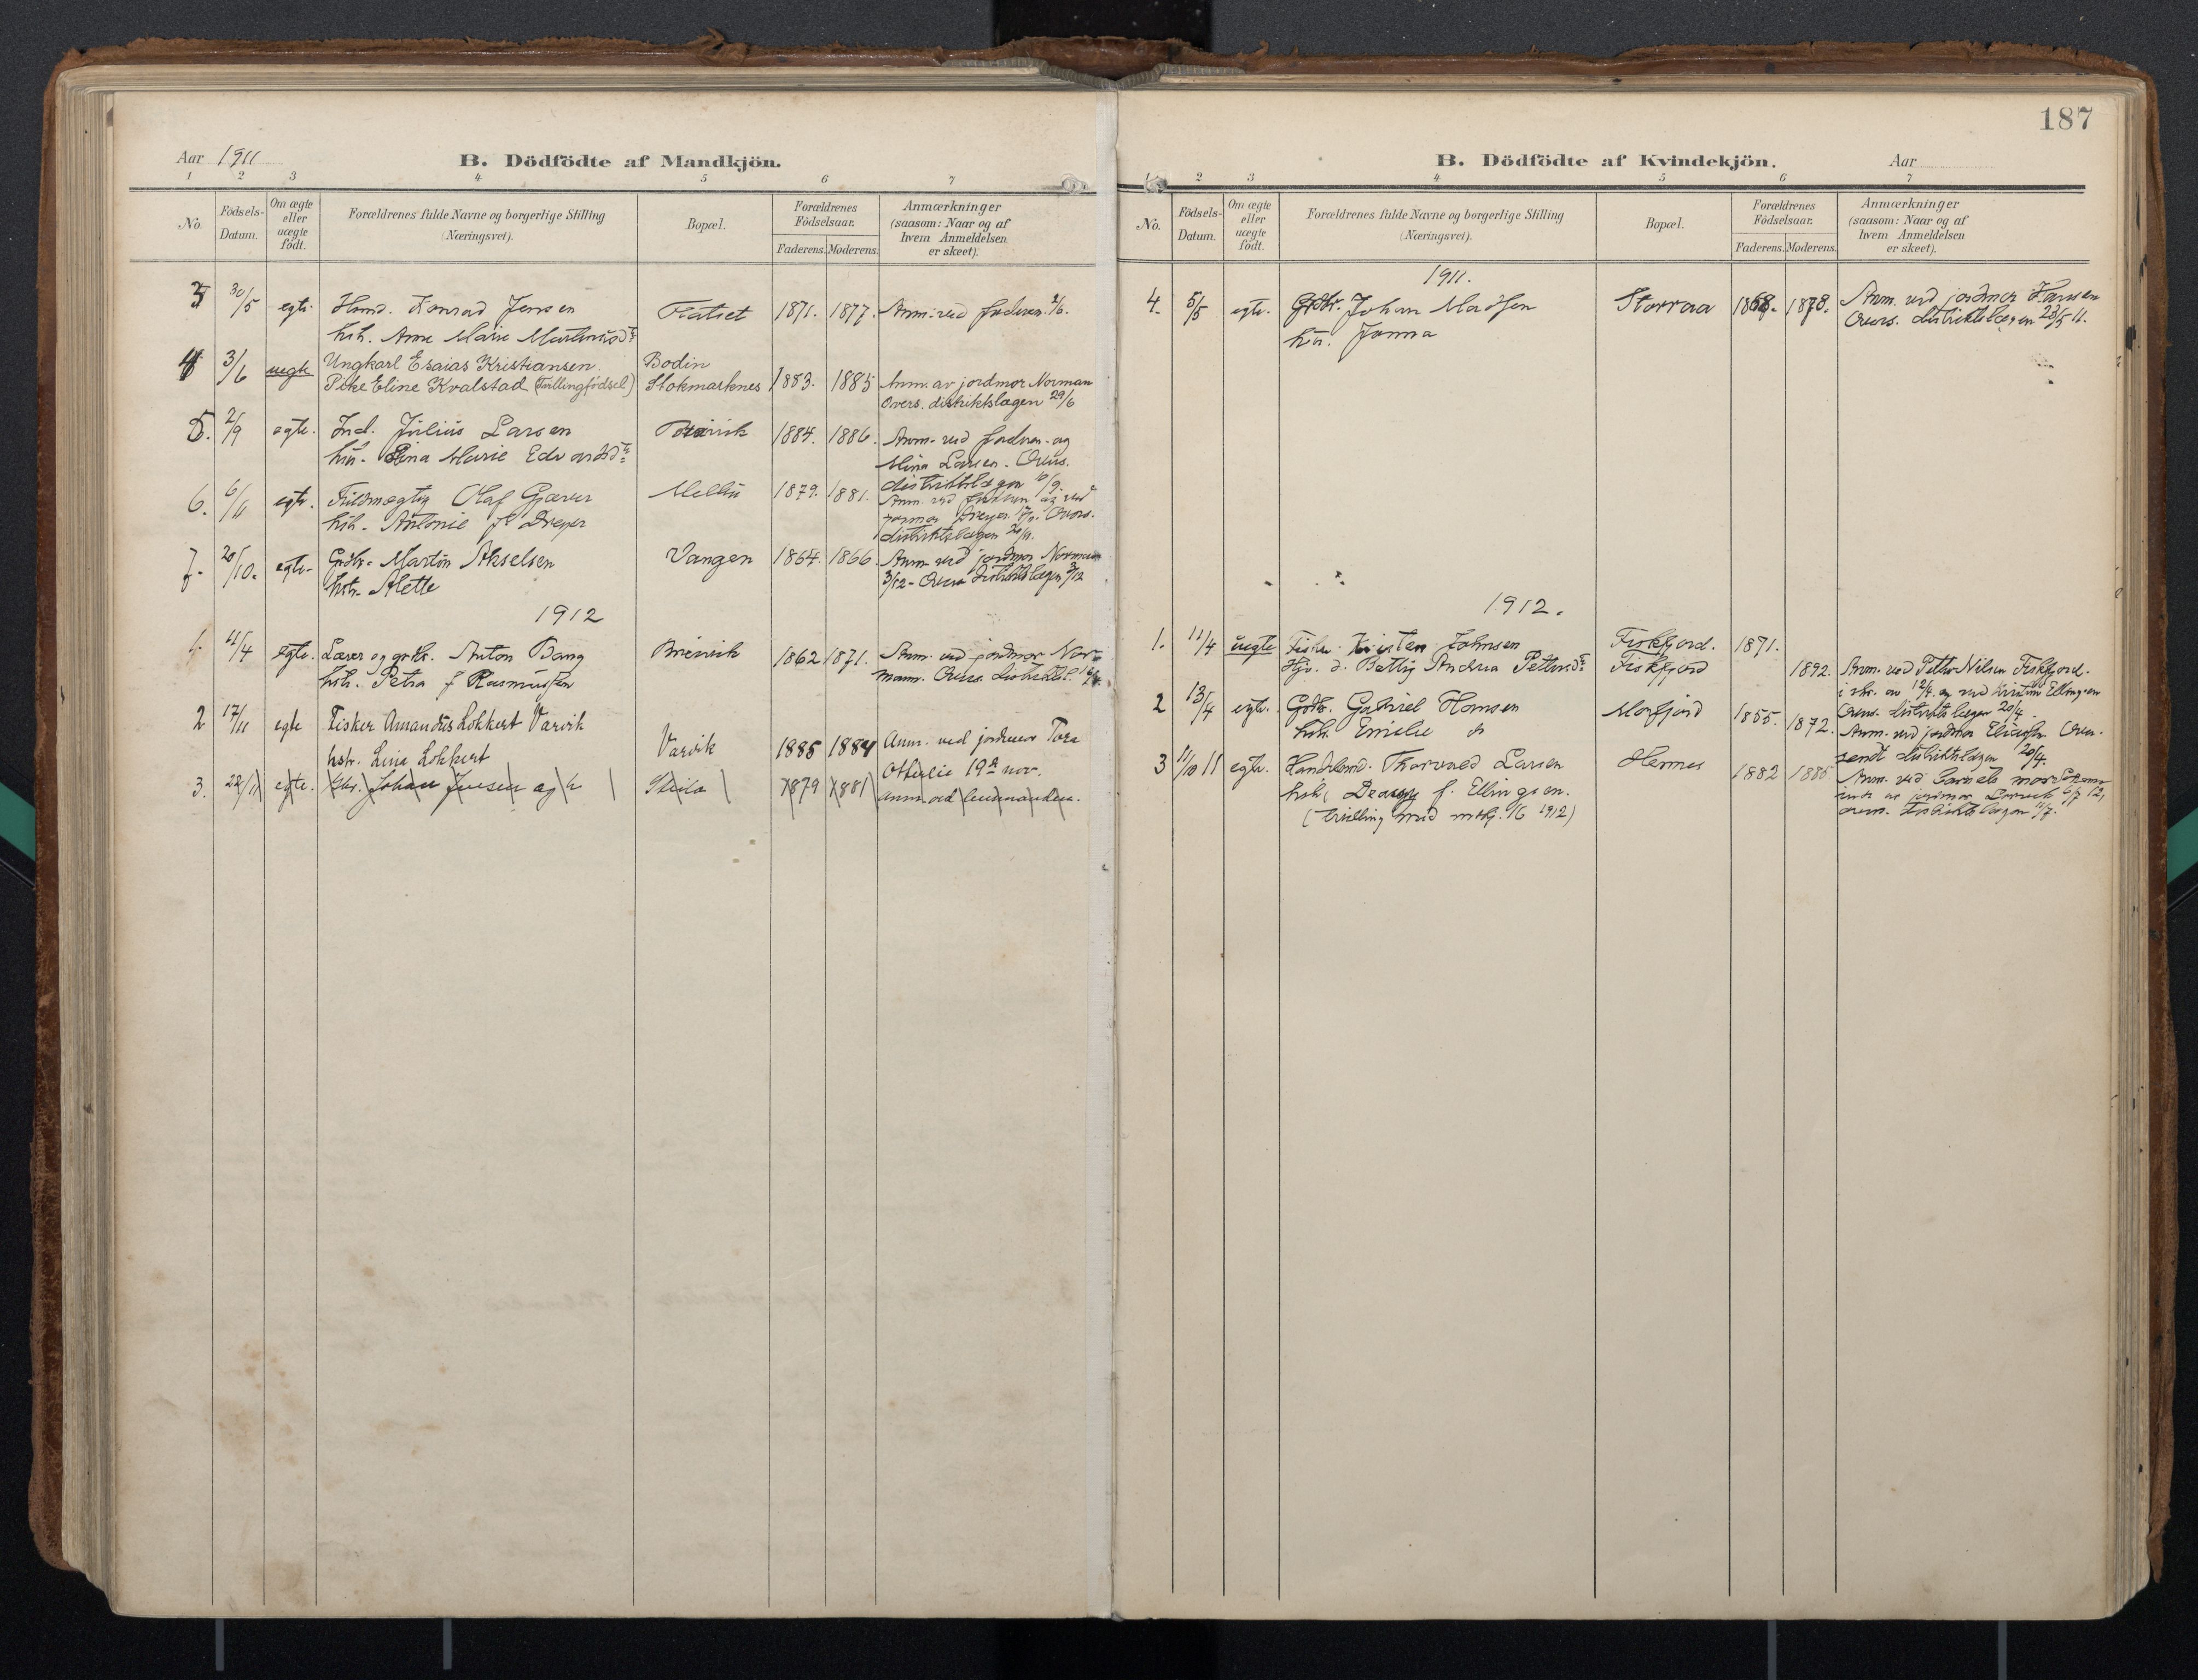 187
Aar 1911
B. Dödfödte af Mandkjön.
1 2 3 4 5 6 7
No.
Födsels-Datum.
Om ægte eller uægte födt.
Forældrenes fulde Navne og borgerlige Stilling (Næringsvei).
Bopæl.
Forældrenes Födselsaar.
Faderens. Moderens.
Anmærkninger (saasom: Naar og af hvem Anmeldelsen er skeet).
3 30/5 egte. Hmd. Konrad Jensen Flatset 1871. 1877. Anm. ved faderen 2/6.
hst. Anne Marie Martinusdtr
4 3/6 uegte Ungkarl Esaias Kristiansen. Bodin
Pike Eline Kvalstad (Tvillingfødsel) Stokmarknes 1883. 1885 Anm. av jordmor Norman
Overs. distriktslægen 29/6
5. 2/9 egte. Ind. Julius Larsen 1884. 1886. Anm. ved faderen og
Marie Edvardsdtr Mina Larsen. Overs.
distriktslægen
6. 6/11 egte. Fuldmægtig Olaf Gjæver Melbu 1879. 1881. Anm. ved faderen og ved
hst. Antonie f. Dreyer Dreyer. Overs.
distriktslægen 20/11.
7. 20/10. egte. Grdbr. Martin Akselsen Vangen 1864. 1866. Anm. ved jordmor Norman
hst. Alette 3/12 - Overs. distriktslægen 3/12
1912
1. 4/4 egte. Lærer og grdbr. Anton Bang 1862 1871. Anm. ved jordmor Nor-
hst. Petra f Rasmussen mann. Overs.
2 17/11 egte Fisker Amandus Lokkert Varvik
hstr. Lina Lokkert Varvik 1885 1884 Anm. ved jordmor Tora
Ottesie 19de nov.
3. 22/11 egte. Johan Jensen og h 1879 1881 Anm. ved
B. Dödfödte af Kvindekjön.
Aar
1 2 3 4 5 6 7
No.
Födsels-Datum.
Om ægte eller uægte födt.
Forældrenes fulde Navne og borgerlige Stilling (Næringsvei).
Bopæl.
Forældrenes Födselsaar.
Faderens. Moderens.
Anmærkninger (saasom: Naar og af hvem Anmeldelsen er skeet).
1911.
4. 5/5 egte. Grdbr. Johan Madssen Storraa 1868. 1878. Anm. ved jordmor Hansen
hu. Janna Overs. distriktslægen 23/5 11.
1912.
1. 11/4 uegte Fisker Kristen Johnsen Fiskfjord. 1871.
Betty Andrea Pettersdtr Fiskfjord 1892. Anm. ved Petter Nilsen Fiskfjord.
12/4 og ved Kristine Ellingsen
2 13/4 egte. Grdbr. Gabriel Hansen 1855. 1872. Overs. distriktslægen 20/4
hst. Emilie Anm. ved jordmor Over-
sendt distriktslægen 20/4.
3 11/10 11 egte. Handelsmd. Thorvald Larsen Hennes 1882 1885 Anm. ved barnets mor
hst. f. Ellingsen. jordmor 6/7 12,
(tvilling med mskj. 16 1912) overs. distriktslægen 11/7.